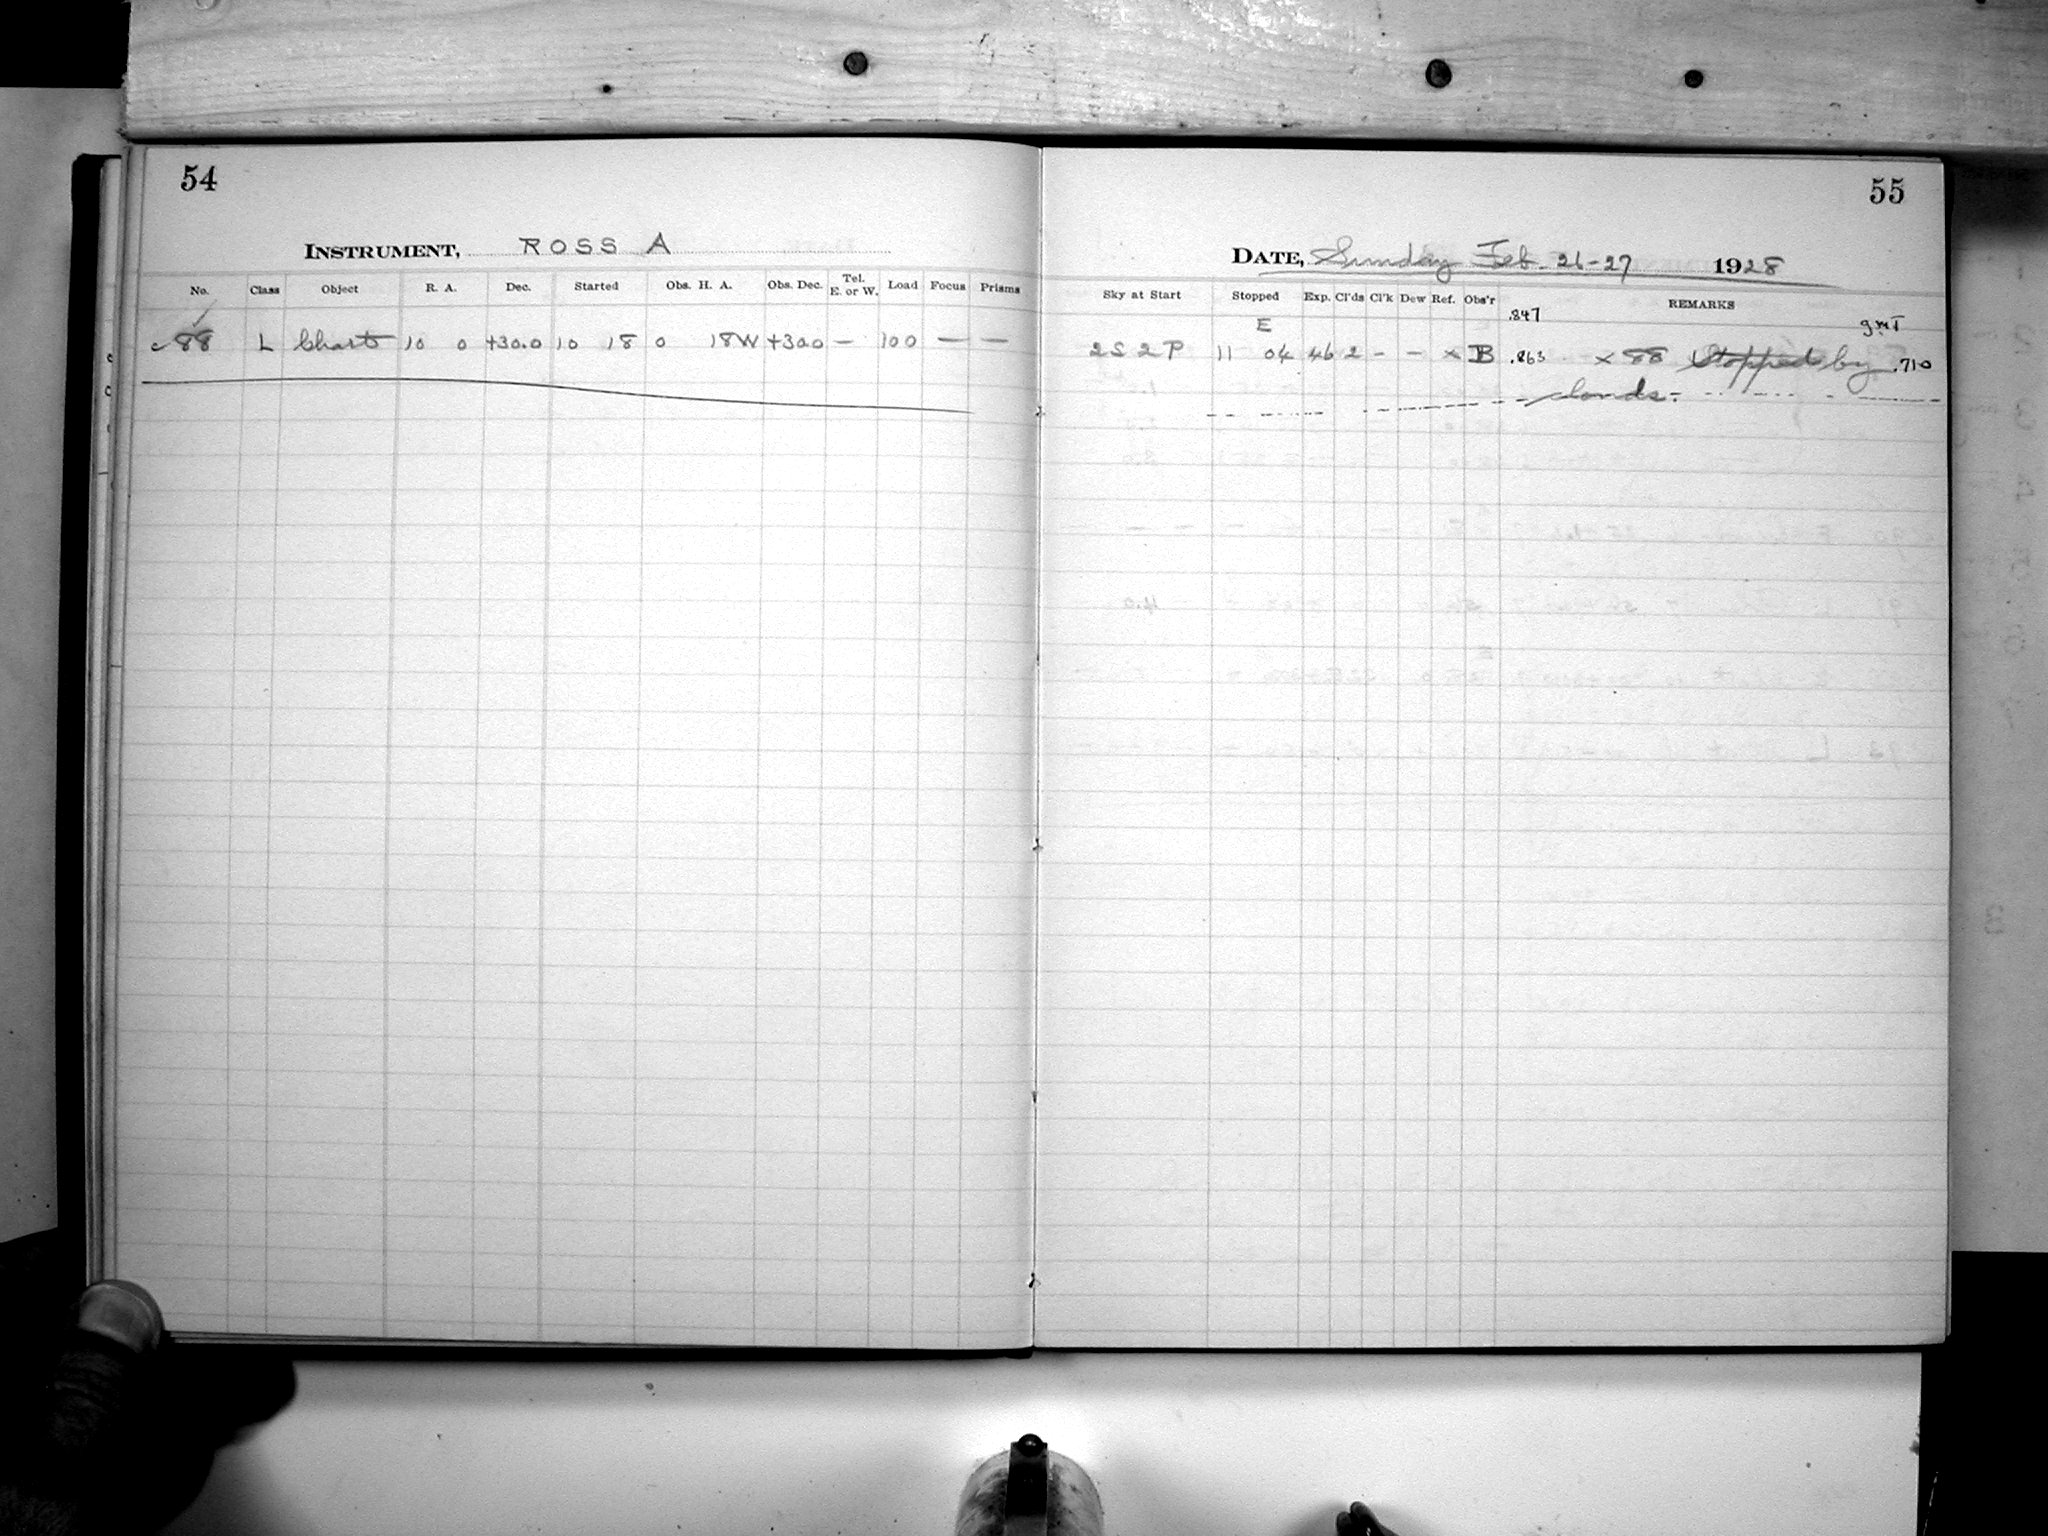 54
INSTRUMENT, ROSS A
No. Class Object R. A. Dec. Started Obs. H. A. Obs. Dec. Tel. E. or W. Load Focus Prisms
88 L Chart 10 0 +30.0 10 18 0 18W +30.0 — 100 — —
55
DATE, Sunday Feb. 26-27 1928
Sky at Start Stopped Exp. Cl'ds Cl'k Dew Ref. Obs'r REMARKS
.847
E
GMT
2S 2P 11 04 46 2 - - x B .863 x 88 Stopped by .710
clouds.